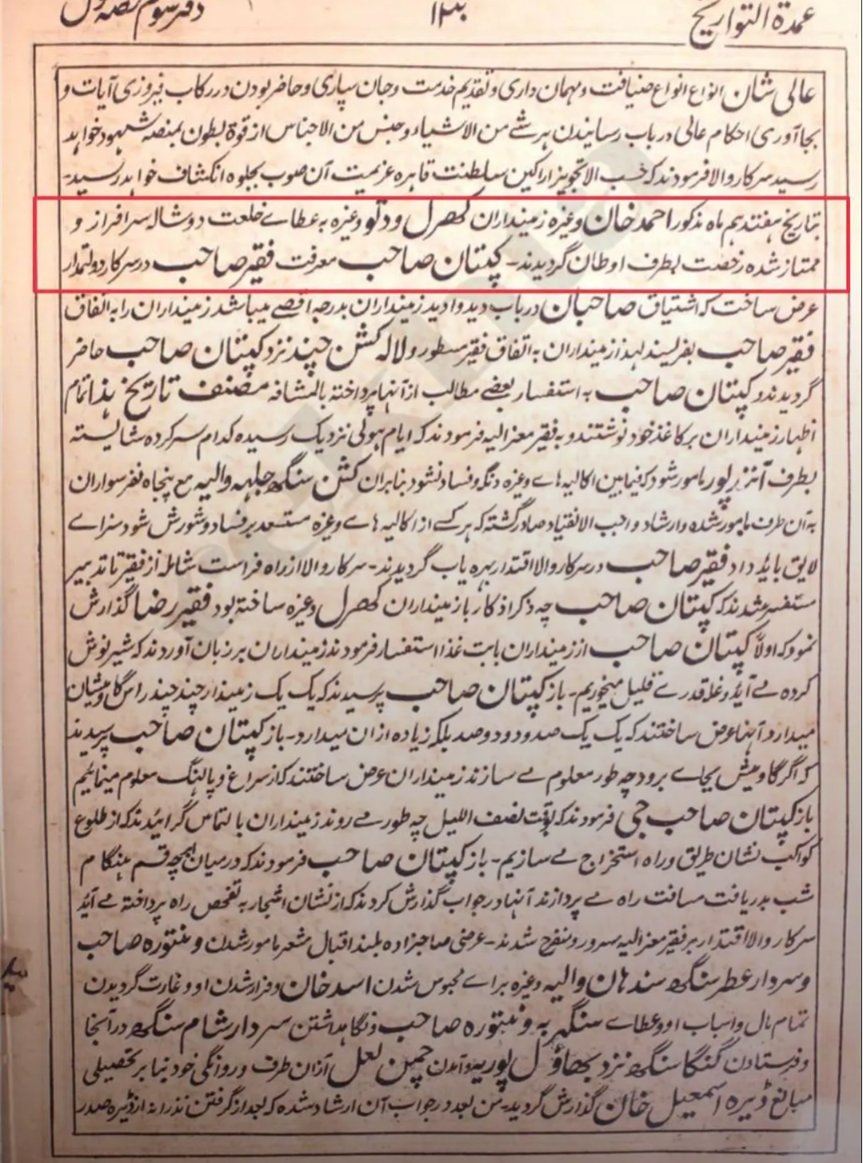 عمدة التواریخ
دفتر سوم حصه اول
عالی شان انواع انواع ضیافت و مهمان داری و تقدیم خدمت و جان سپاری و حاضر بودن در رکاب فیروزی آیات و
بجا آوری احکام عالی در باب رسانیدن هر شے من الاشیاء و جنس من الاجناس از قوة بطون بمنصه شهود خواهد
رسید سرکار والا فرمودند که حسب التجویز اراکین سلطنت قاهره عزیمت آن صوب بجلوه انکشاف خواهد رسید-
بتاریخ هفتدهم ماه مذکور احمد خان وغیره زمینداران کهرل و دتو وغیره به عطاے خلعت دوشاله سرافراز و
ممتاز شده رخصت بطرف اوطان گردیدند- کپتان صاحب معرفت فقیر صاحب در سرکار دولتمدار
عرض ساخت که اشتیاق صاحبان در باب دید وادید زمینداران بدرجه اقصے میباشد زمینداران را به اتفاق
فقیر صاحب بفرستند لهذا زمینداران به اتفاق فقیر مسطور و لاله کشن چند نزد کپتان صاحب حاضر
گردیدند و کپتان صاحب به استفسار بعضے مطالب از آنها پرداخته بالمشافه مصنف تاریخ هذا تمام
اظهار زمینداران بر کاغذ خود نوشتند و به فقیر معز الیه فرمودند که ایام هولی نزدیک رسیده کدام سرکرده شایسته
بطرف آنندپور مامور شود که فیمابین اکالیه هاے وغیره دنگه و فساد نشود بنابران کشن سنگھ چلهه والیه مع پنجاه نفر سواران
به آن طرف مامور شده و ارشاد واجب الانقیاد صادر گشته که هر کسے از اکالیه هاے وغیره مستعد بر فساد و شورش شود سزاے
لایق باید داد فقیر صاحب در سرکار والا اقتدار بهره یاب گردیدند- سرکار والا از راه فراست شامله از فقیر تا تدبیر
مستفسر شدند که کپتان صاحب چه ذکر اذکار باز مینداران کهرل وغیره ساخته بود فقیر رضا گذارش
نمود که اولاً کپتان صاحب از زمینداران بابت غذا استفسار فرمودند زمینداران بر زبان آوردند که شیر نوش
کرده مے آید و غله قدرے قلیل میخوریم- باز کپتان صاحب پرسیدند که یک یک زمیندار چند چند راس گاو میشان
میدارد آنها عرض ساختند که یک یک صد و دو دو صد بلکه زیاده ازان میدارد- باز کپتان صاحب پرسیدند
که اگر گاومیش بجاے برود چه طور معلوم مے سازند زمینداران عرض ساختند که از سراغ و پالهنگ معلوم مینمائیم
باز کپتان صاحب جی فرمودند که بوقت نصف اللیل چه طور مے روند زمینداران بالتماس گرائیدند که از طلوع
کواکب نشان طریق و راه استخراج مے سازیم- باز کپتان صاحب فرمودند که درمیان همچه قسم هنگام
شب بدریافت مسافت راه مے پردازند آنها در جواب گذارش کردند که از نشان اشجار به تفحص راه پرداخته مے آید
سرکار والا اقتدار بر فقیر معز الیه مسرور و متفرح شدند- عرضی صاحبزاده بلند اقبال مشعر مامور شدن ونتوره صاحب
و سردار عطر سنگھ سندهان والیه وغیره براے محبوس شدن اسد خان و فرار شدن او و غارت گردیدن
تمام مال و اسباب او و عطاے سنگهر به ونتوره صاحب و نگاهداشتن سردار شام سنگھ در آنجا
و فرستادن گنگا سنگھ نزد بهاول پوریه و آمدن چمن لعل ازان طرف و روانگی خود بنا بر تحصیلی
مبالغ ڈیره اسمعیل خان گذارش گردید- من بعد در جواب آن ارشاد شده که بعد از گرفتن نذرانه از ڈیره صدر